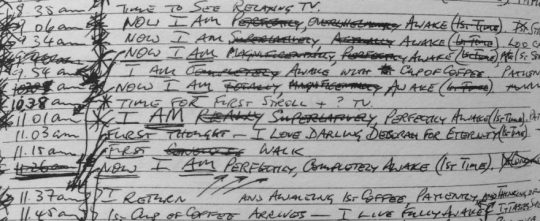 8.38am TIME TO SEE RELAXING TV.
9.06am NOW I AM PERFECTLY, OVERWHELMINGLY AWAKE (1ST TIME).
9.34am NOW I AM SUPERLATIVELY ACTUALLY AWAKE (1ST TIME)
NOW I AM MAGNIFICENTLY, PERFECTLY AWAKE (1ST TIME)
9.54am I AM COMPLETELY AWAKE WITH CUP OF COFFEE. PATIENT
NOW I AM TOTALLY MAGNIFICENTLY AWAKE (1ST TIME)
10.38 TIME FOR FIRST STROLL + ? TV.
11.01am I AM REALLY SUPERLATIVELY PERFECTLY AWAKE (1ST TIME). PAT
11.03am FIRST THOUGHT – I LOVE DARLING DEBORAH FOR ETERNITY (1ST TIME).
11.18am FIRST WALK
11.26am NOW I AM PERFECTLY, COMPLETELY AWAKE (1ST TIME).
11.37am I RETURN AND AWAITING 1ST COFFEE, PATIENTLY, AND THINKING OF
11.45am 1ST CUP OF COFFEE ARRIVES – I LIVE FULLY AWAKE